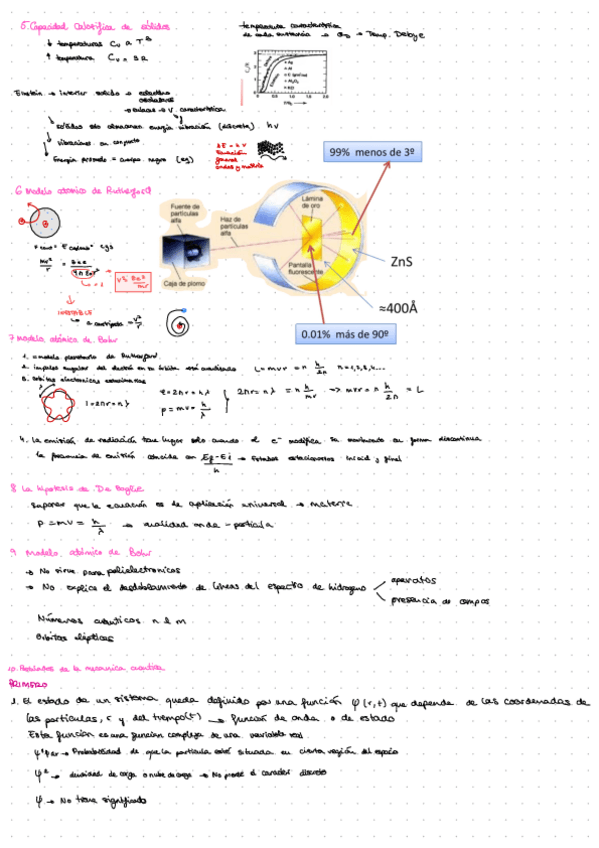 5. Capacidad Calorífica de sólidos
↓ temperaturas Cv α T³
↑ temperatura Cv ~ 3R
temperatura característica
de cada sustancia → θD → Temp. Debye
Einstein → interior solido → estactiro
osciladores
→ característica
→ sólidos solo almacenan energía vibración (discreta) hν
→ vibraciones en conjunto
Energía promedio = cuerpo negro (eq)
ΔE = hν
general
ondas y materia
99% menos de 3º
6 Modelo atómico de Rutherford
Fuente de
partículas
alfa
Haz de
partículas
alfa
Lámina
de oro
ZnS
Pantalla
fluorescente
Caja de plomo
≈400Å
0.01% más de 90º
INESTABLE
a centrípeta = v²/r
7 Modelo atómico de Bohr
1. modelo planetario de Rutherford
2. impulso angular del electrón en su órbita está cuantizado L = mvr = n h/2π n=1,2,3,4...
3. órbitas electrónicas estacionarias
l = 2πr = nλ
l = 2πr = nλ
p = mv = h/λ
2πr = nλ = n h/mv => mvr = n h/2π = L
4. La emisión de radiación tiene lugar solo cuando el e⁻ modifica su movimiento en forma discontinua
la frecuencia de emisión coincide con Ef-Ei/h → Estados estacionarios inicial y final
8 La hipotesis de De Broglie
Suponer que la ecuación es de aplicación universal → materia
p = mv = h/λ → dualidad onda-partícula
9 Modelo atómico de Bohr
→ No sirve para polielectronicos
→ No explica el desdoblamiento de líneas del espectro de hidrogeno
aparatos
presencia de campos
Números cuánticos n l m
Orbitas elípticas
10. Postulados de la mecanica cuantica
PRIMERO
1. El estado de un sistema queda definido por una función φ(r,t) que depende de las coordenadas de
las partículas, r y del tiempo(t) → función de onda o de estado
Esta función es una función compleja de una variable real
→ Probabilidad de que la partícula esté situada en cierta región del espacio
φ² → densidad de carga o nube de carga → No pierde el carácter discreto
φ → No tiene significado